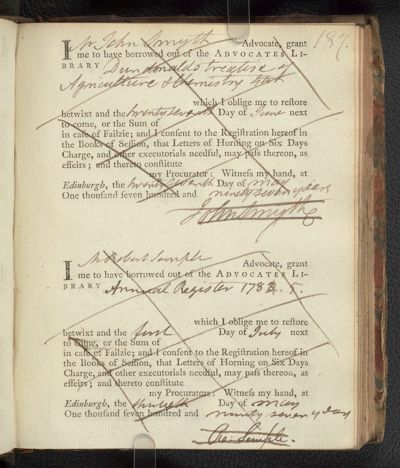 187.
I Mr John Smyth Advocate, grant
me to have borrowed out of the ADVOCATES LI-
BRARY Dundonald's treatise of
Agriculture & Chemistry
which I oblige me to reſtore
betwixt and the twenty seventh Day of June next
to come, or the Sum of
in caſe of Failzie; and I conſent to the Regiſtration hereof in
the Books of Seſſion, that Letters of Horning on Six Days
Charge, and other executorials needful, may paſs thereon, as
effeirs; and thereto conſtitute
my Procurator: Witneſs my hand, at
Edinburgh, the twenty seventh Day of may
One thouſand ſeven hundred and ninety seven years
John Smyth
I Mr Robert Semple Advocate, grant
me to have borrowed out of the ADVOCATES LI-
BRARY Annual Register 1783. 5.
which I oblige me to reſtore
betwixt and the first Day of July next
to come, or the Sum of
in caſe of Failzie; and I conſent to the Regiſtration hereof in
the Books of Seſſion, that Letters of Horning on Six Days
Charge, and other executorials needful, may paſs thereon, as
effeirs; and thereto conſtitute
my Procurators: Witneſs my hand, at
Edinburgh, the thirtieth Day of may
One thouſand ſeven hundred and ninety seven years
Ro: Semple.